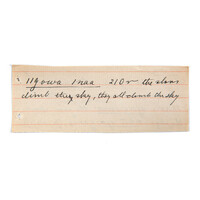 119 owa Inaa 210r the stars
climb the sky, they all climb the sky